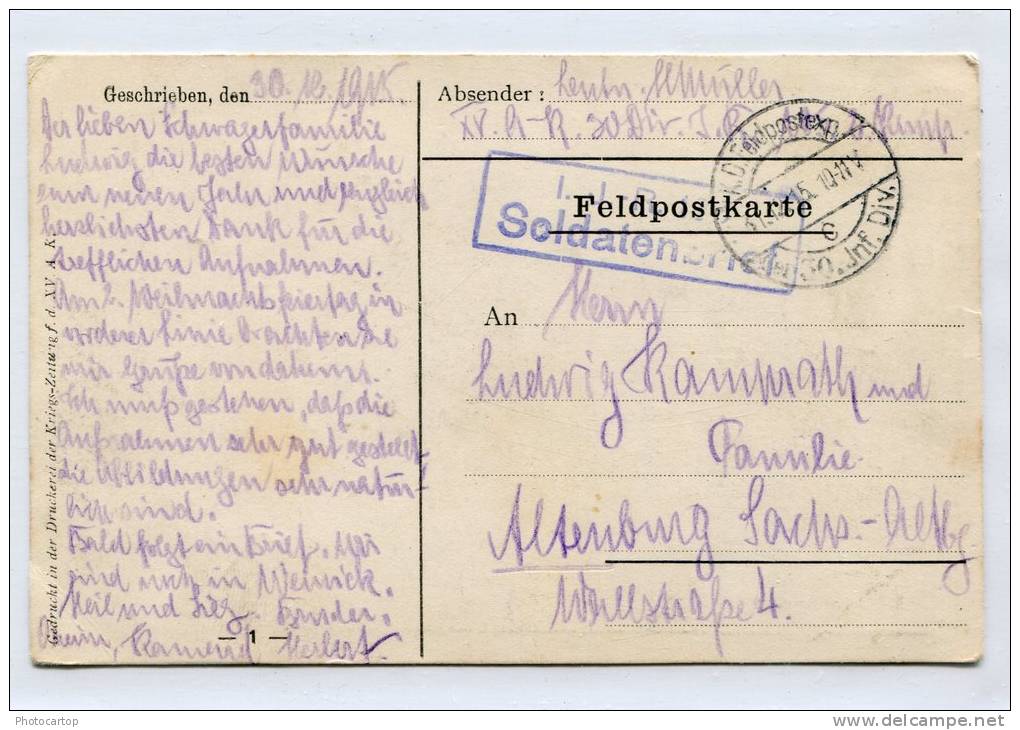 Geschrieben, den 30. 12. 1915.
Der lieben Schwagerfamilie
Ludwig die besten Wünsche
zum neuen Jahr und zugleich
herzlichsten Dank für die
trefflichen Aufnahmen.
Am 2. Weihnachtsfeiertag in
vorderer Linie brachten Sie
mir Grüße von daheim.
Ich muß gestehen, daß die
Aufnahmen sehr gut gestellt
die Abbildungen sehr natür-
lich sind.
Bald folgt ein Brief. Wir
sind noch in Werwick.
Heil und Sieg. Bruder,
Kamerad Herbert.
— 1 —
Gedruckt in der Druckerei der Kriegs-Zeitung f. d. XV. A. K.
Absender: Leutn. Müller
XV. A-K. 30 Div. I. R.
Feldpostkarte
Soldatenbrief
Feldpostexp.
10-11 V
c
Inf. Div.
An Herrn
Ludwig Kamprath und
Familie
Altenburg Sachs.-Altbg
Wallstraße 4.
Photocartop
www.delcampe.net